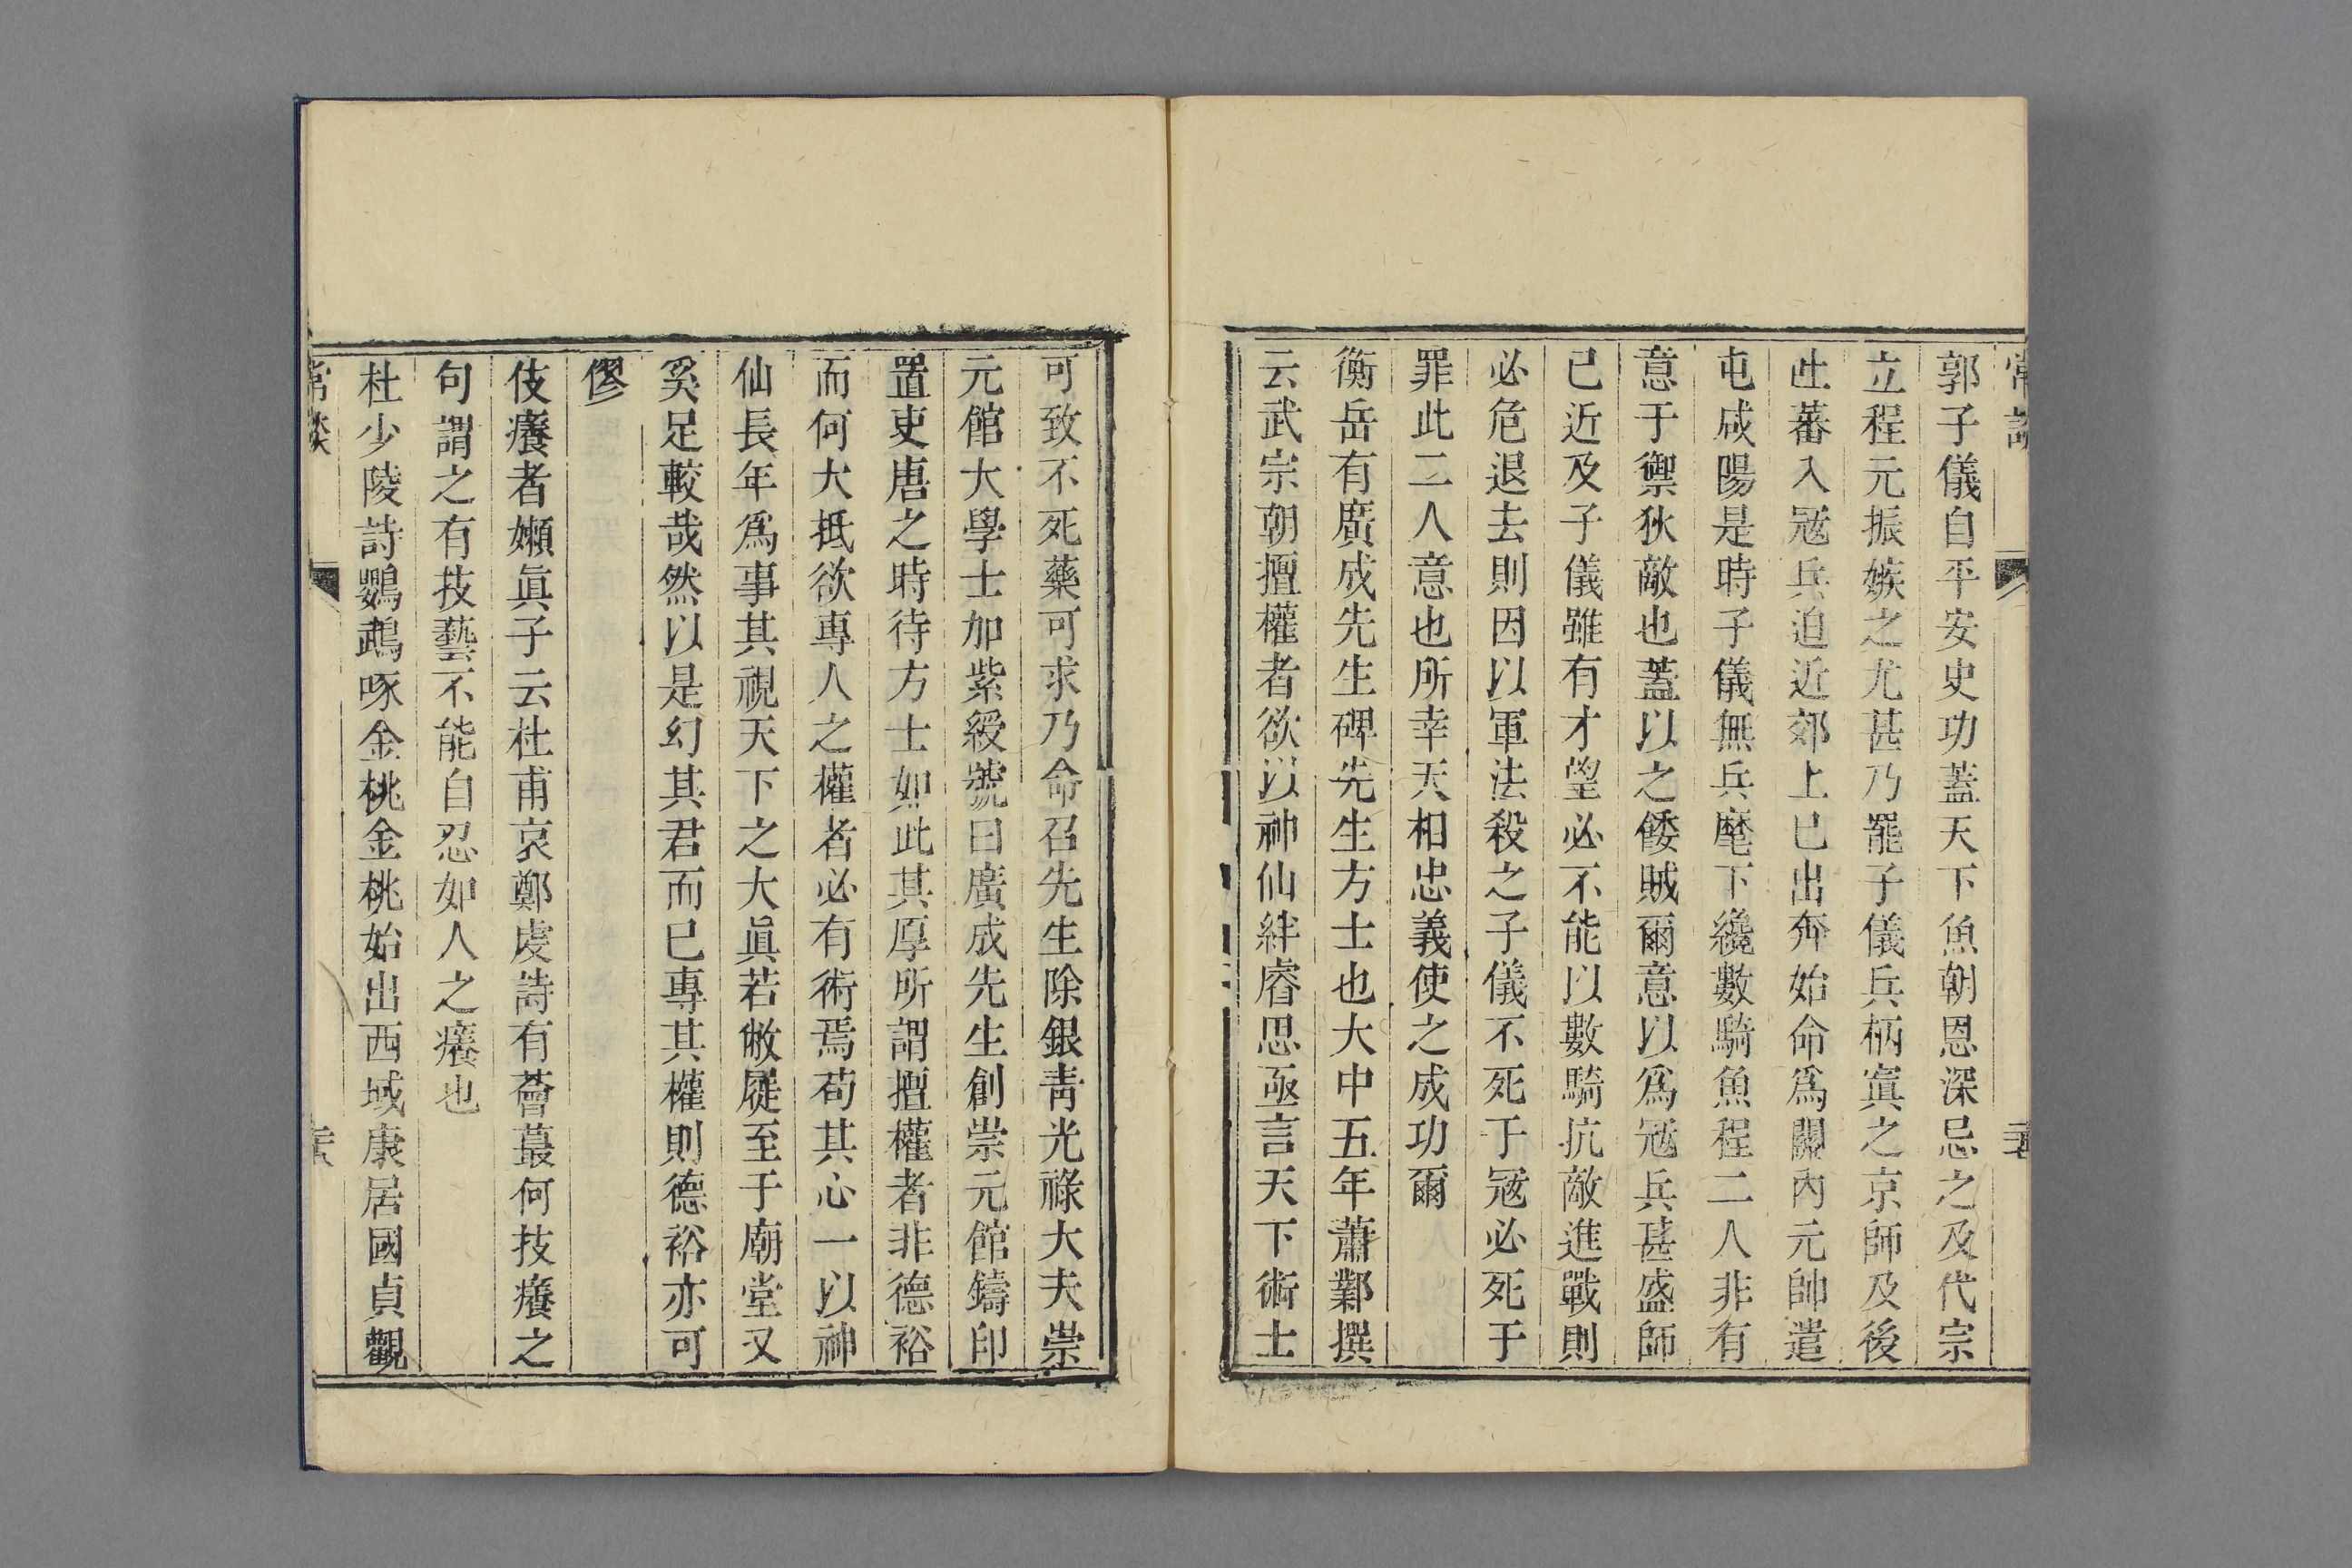 郭子儀自平安史功蓋天下魚朝恩深忌之及代宗
立程元振嫉之尤甚乃罷子儀兵柄寘之京師及後
吐蕃入冦兵迫近郊上已出奔始命爲關內元帥遣
屯咸陽是時子儀無兵麾下纔數騎魚程二人非有
意于禦狄敵也蓋以之餧賊爾意以爲冦兵甚盛師
已近及子儀雖有才望必不能以數騎抗敵進戰則
必危退去則因以軍法殺之子儀不死于冦必死于
罪此二人意也所幸天相忠義使之成功爾
衡岳有廣成先生碑先生方士也大中五年蕭鄴撰
云武宗朝擅權者欲以神仙絆睿思亟言天下術士
可致不死藥可求乃命召先生除銀青光祿大夫崇
元館大學士加紫綬號曰廣成先生創崇元館鑄印
置吏唐之時待方士如此其厚所謂擅權者非德裕
而何大抵欲專人之權者必有術焉苟其心一以神
仙長年爲事其視天下之大眞若敝屣至于廟堂又
奚足較哉然以是幻其君而已專其權則德裕亦可
僇
伎癢者嬾眞子云杜甫哀鄭虔詩有薈蕞何技癢之
句謂之有技藝不能自忍如人之癢也
杜少陵詩鸚鵡啄金桃金桃始出西域康居國貞觀
常談